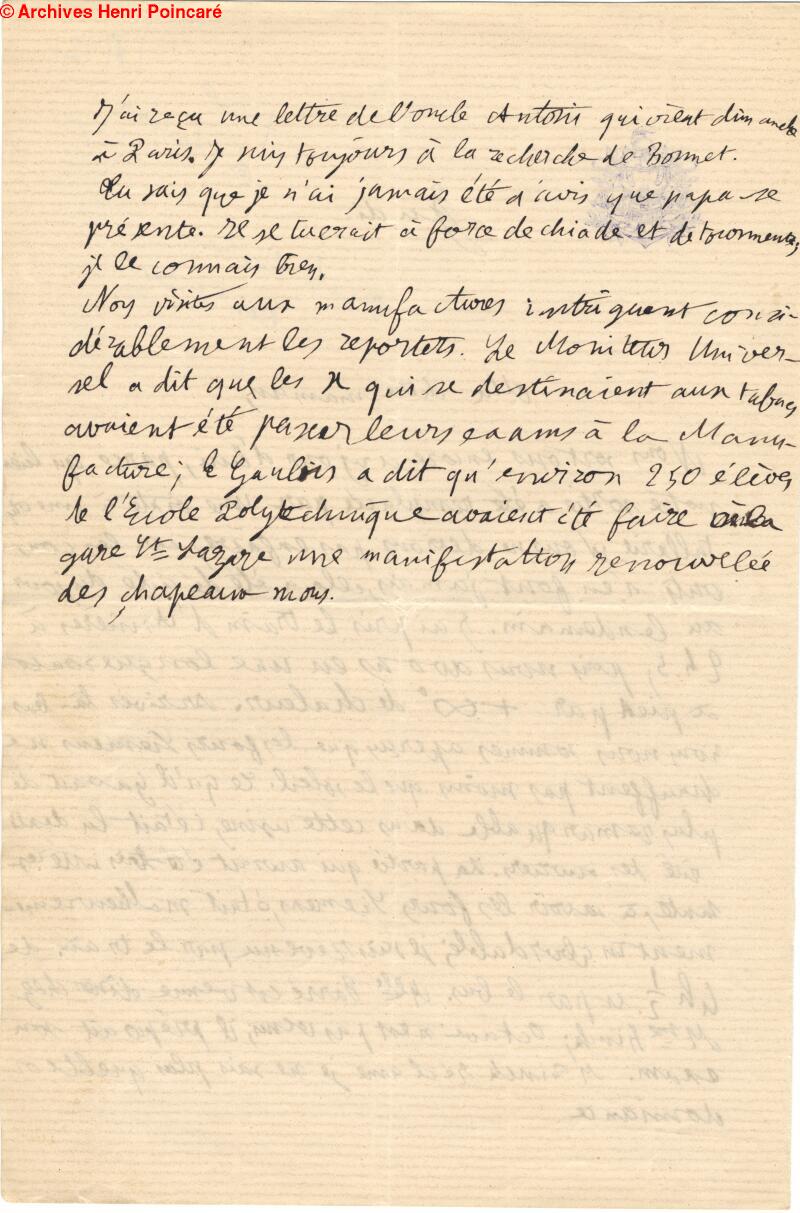 © Archives Henri Poincaré
J'ai reçu une lettre de l'oncle Antoni qui vient dimanche
à Paris. Je suis toujours à la recherche de Bonnet.
Tu sais que je n'ai jamais été d'avis que papa se
présente. Il se tuerait à force de chiade et de tourments;
je le connais bien.
Nos visites aux manufactures intriguent consi-
dérablement les reporters. Le Moniteur Univer-
sel a dit que les X qui se destinaient aux tabacs
avaient été passer leurs exams à la Manu-
facture; le Gaulois a dit qu'environ 250 élèves
de l'Ecole Polytechnique avaient été faire à la
gare St Lazare une manifestation renouvellée
des chapeaux mous.